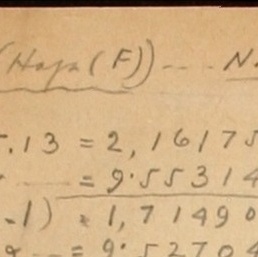 (Haga (F)) --- N
.13 = 2, 16175
--- = 9.55314
-1) . 1, 71490
= 9.52704